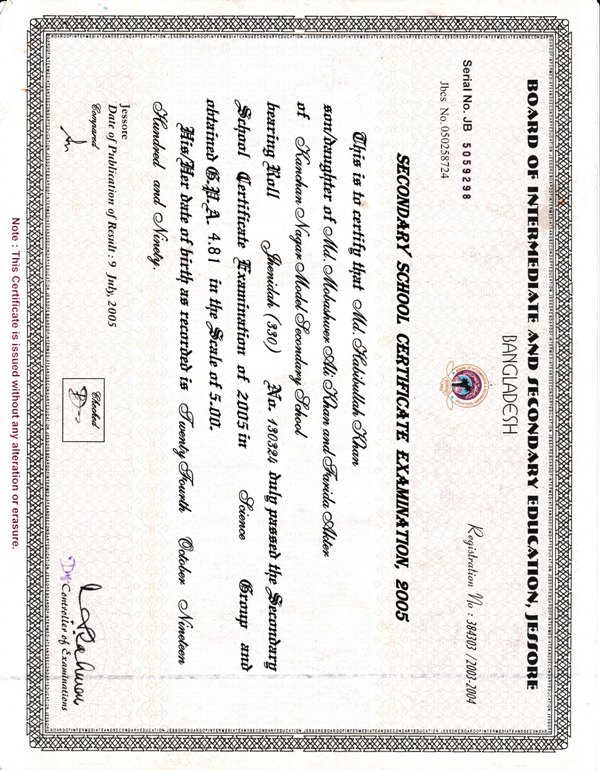 BOARD OF INTERMEDIATE AND SECONDARY EDUCATION, JESSORE
BANGLADESH
Serial No. JB 5059298
Jbcs No. 050258724
Registration No : 384303 /2003-2004
SECONDARY SCHOOL CERTIFICATE EXAMINATION, 2005
This is to certify that Md. Habibullah Khan
son/daughter of Md. Mobashwer Ali Khan and Farida Akter
of Kanchan Nagar Model Secondary School
bearing Roll Jhenidah (330) No. 130324 duly passed the Secondary
School Certificate Examination of 2005 in Science Group and
obtained G.P.A. 4.81 in the Scale of 5.00.
His/Her date of birth as recorded is Twenty Fourth October Nineteen
Hundred and Ninety.
Jessore
Date of Publication of Result : 9 July, 2005
Compared
Checked
Dy. Controller of Examinations
Note : This Certificate is issued without any alteration or erasure.